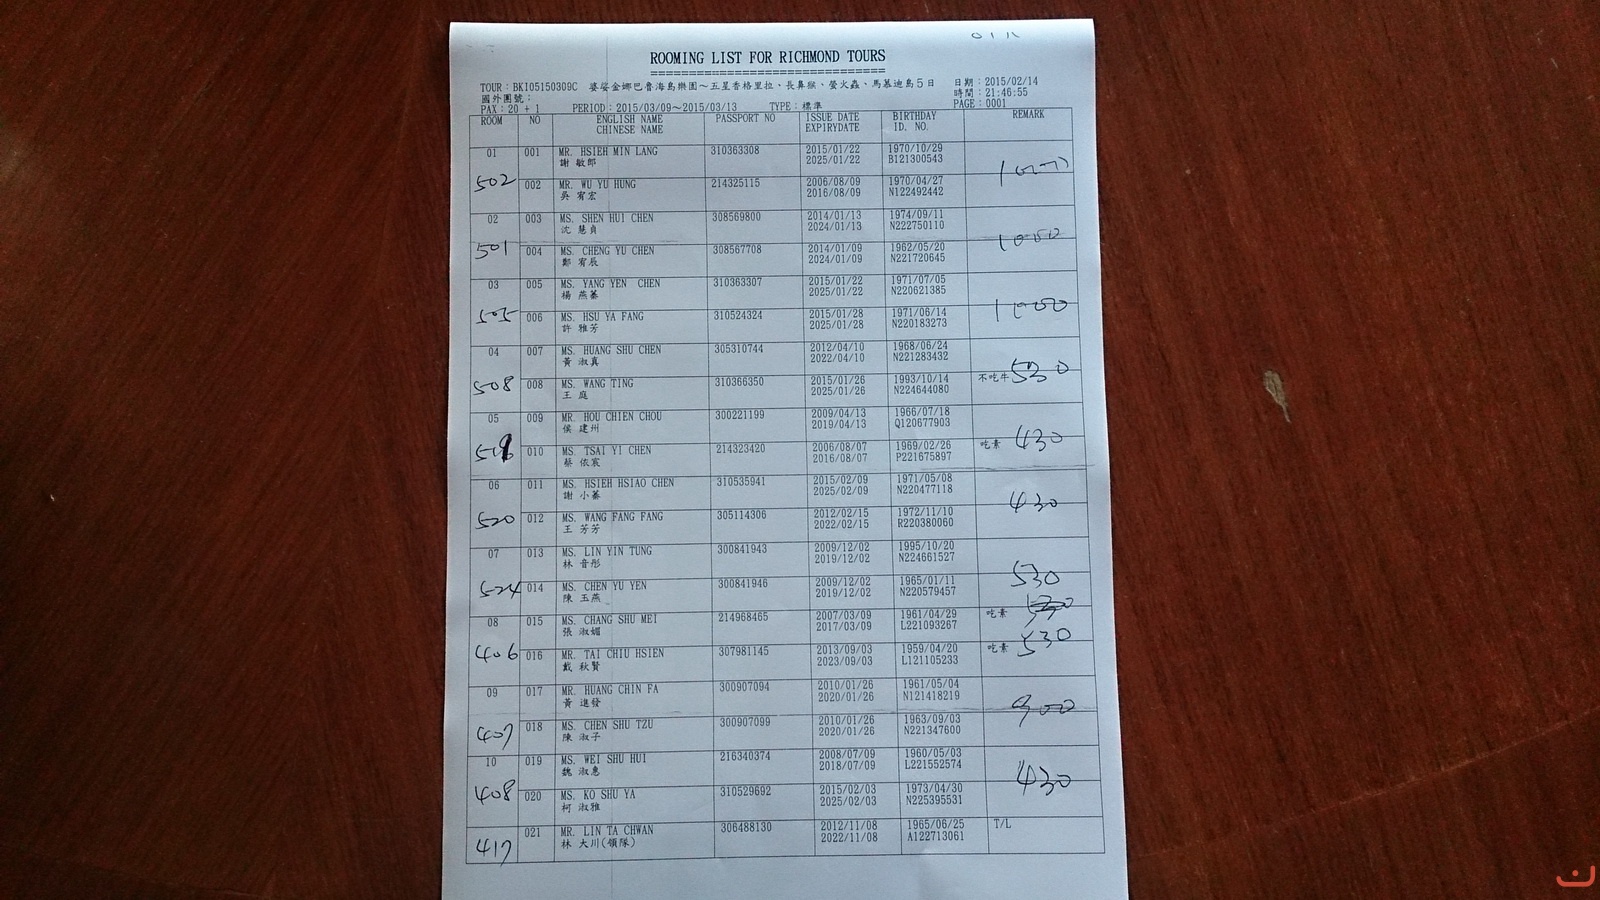 ROOMING LIST FOR RICHMOND TOURS
==============================
TOUR：BKI05150309C 婆娑金娜巴魯海島樂園～五星香格里拉、長鼻猴、螢火蟲、馬慕迪島５日 日期：2015/02/14
國外團號： 時間：21:46:55
PAX：20 + 1 PERIOD：2015/03/09～2015/03/13 TYPE：標準 PAGE：0001
ROOM NO ENGLISH NAME PASSPORT NO ISSUE DATE BIRTHDAY REMARK
CHINESE NAME EXPIRYDATE ID. NO.
01 001 MR. HSIEH MIN LANG 310363308 2015/01/22 1970/10/29
謝 敏郎 2025/01/22 B121300543
502 002 MR. WU YU HUNG 214325115 2006/08/09 1970/04/27
吳 宥宏 2016/08/09 N122492442
02 003 MS. SHEN HUI CHEN 308569800 2014/01/13 1974/09/11
沈 慧貞 2024/01/13 N222750110
501 004 MS. CHENG YU CHEN 308567708 2014/01/09 1962/05/20 1000
鄭 宥辰 2024/01/09 N221720645
03 005 MS. YANG YEN CHEN 310363307 2015/01/22 1971/07/05
楊 燕蓁 2025/01/22 N220621385
505 006 MS. HSU YA FANG 310524324 2015/01/28 1971/06/14
許 雅芳 2025/01/28 N220183273
04 007 MS. HUANG SHU CHEN 305310744 2012/04/10 1968/06/24
黃 淑真 2022/04/10 N221283432
508 008 MS. WANG TING 310366350 2015/01/26 1993/10/14 不吃牛 530
王 庭 2025/01/26 N224644080
05 009 MR. HOU CHIEN CHOU 300221199 2009/04/13 1966/07/18
侯 建州 2019/04/13 Q120677903
010 MS. TSAI YI CHEN 214323420 2006/08/07 1969/02/26 吃素 430
蔡 依宸 2016/08/07 P221675897
06 011 MS. HSIEH HSIAO CHEN 310535941 2015/02/09 1971/05/08
謝 小蓁 2025/02/09 N220477118 430
520 012 MS. WANG FANG FANG 305114306 2012/02/15 1972/11/10
王 芳芳 2022/02/15 R220380060
07 013 MS. LIN YIN TUNG 300841943 2009/12/02 1995/10/20
林 音彤 2019/12/02 N224661527
524 014 MS. CHEN YU YEN 300841946 2009/12/02 1965/01/11 530
陳 玉燕 2019/12/02 N220579457
08 015 MS. CHANG SHU MEI 214968465 2007/03/09 1961/04/29 吃素
張 淑媚 2017/03/09 L221093267
406 016 MR. TAI CHIU HSIEN 307981145 2013/09/03 1959/04/20 吃素 530
戴 秋賢 2023/09/03 L121105233
09 017 MR. HUANG CHIN FA 300907094 2010/01/26 1961/05/04
黃 進發 2020/01/26 N121418219 900
407 018 MS. CHEN SHU TZU 300907099 2010/01/26 1963/09/03
陳 淑子 2020/01/26 N221347600
10 019 MS. WEI SHU HUI 216340374 2008/07/09 1960/05/03
魏 淑惠 2018/07/09 L221552574 430
408 020 MS. KO SHU YA 310529692 2015/02/03 1973/04/30
柯 淑雅 2025/02/03 N225395531
021 MR. LIN TA CHWAN 306488130 2012/11/08 1965/06/25 T/L
417 林 大川(領隊) 2022/11/08 A122713061